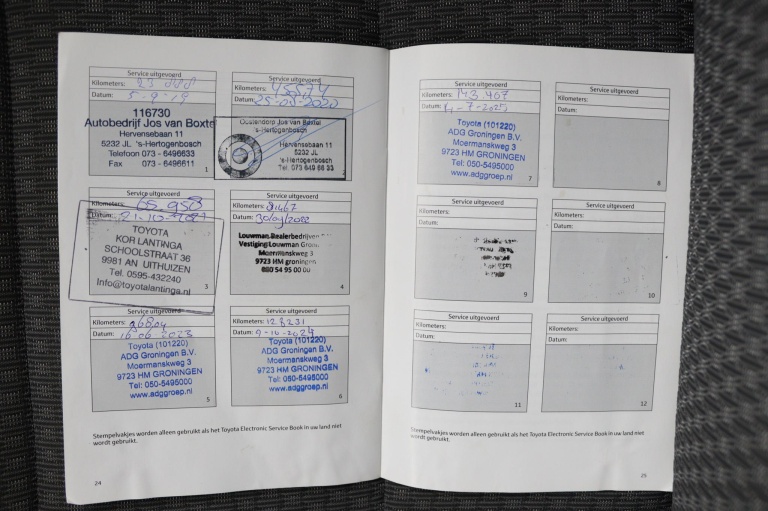 Service uitgevoerd
Kilometers: 23 888
Datum: 5-9-19
116730
Autobedrijf Jos van Boxtel
Hervensebaan 11
5232 JL 's-Hertogenbosch
Telefoon 073 - 6496633
Fax 073 - 6496611
1
Service uitgevoerd
Kilometers: 45574
Datum: 25-08-2020
Oostendorp Jos van Boxtel
's-Hertogenbosch
Hervensebaan 11
5232 JL
's-Hertogenbosch
Tel. 073 649 66 33
Service uitgevoerd
Kilometers: 65 958
Datum: 21-10-2021
TOYOTA
KOR LANTINGA
SCHOOLSTRAAT 36
9981 AN UITHUIZEN
Tel. 0595-432240
Info@toyotalantinga.nl
3
Service uitgevoerd
Kilometers:
Datum: 30/09/2022
Louwman Dealerbedrijven
Vestiging Louwman
Moermanskweg 3
9723 HM groningen
050 54 95 00 00
4
Service uitgevoerd
Kilometers:
Datum: 16-06-2023
Toyota (101220)
ADG Groningen B.V.
Moermanskweg 3
9723 HM GRONINGEN
Tel: 050-5495000
www.adggroep.nl
5
Service uitgevoerd
Kilometers: 128231
Datum: 9-10-2024
Toyota (101220)
ADG Groningen B.V.
Moermanskweg 3
9723 HM GRONINGEN
Tel: 050-5495000
www.adggroep.nl
6
Stempelvakjes worden alleen gebruikt als het Toyota Electronic Service Book in uw land niet
wordt gebruikt.
24
Service uitgevoerd
Kilometers: 143 907
Datum: 4-7-2025
Toyota (101220)
ADG Groningen B.V.
Moermanskweg 3
9723 HM GRONINGEN
Tel: 050-5495000
www.adggroep.nl
7
Service uitgevoerd
Kilometers:
Datum:
8
Service uitgevoerd
Kilometers:
Datum:
9
Service uitgevoerd
Kilometers:
Datum:
10
Service uitgevoerd
Kilometers:
Datum:
11
Service uitgevoerd
Kilometers:
Datum:
12
Stempelvakjes worden alleen gebruikt als het Toyota Electronic Service Book in uw land niet
wordt gebruikt.
25